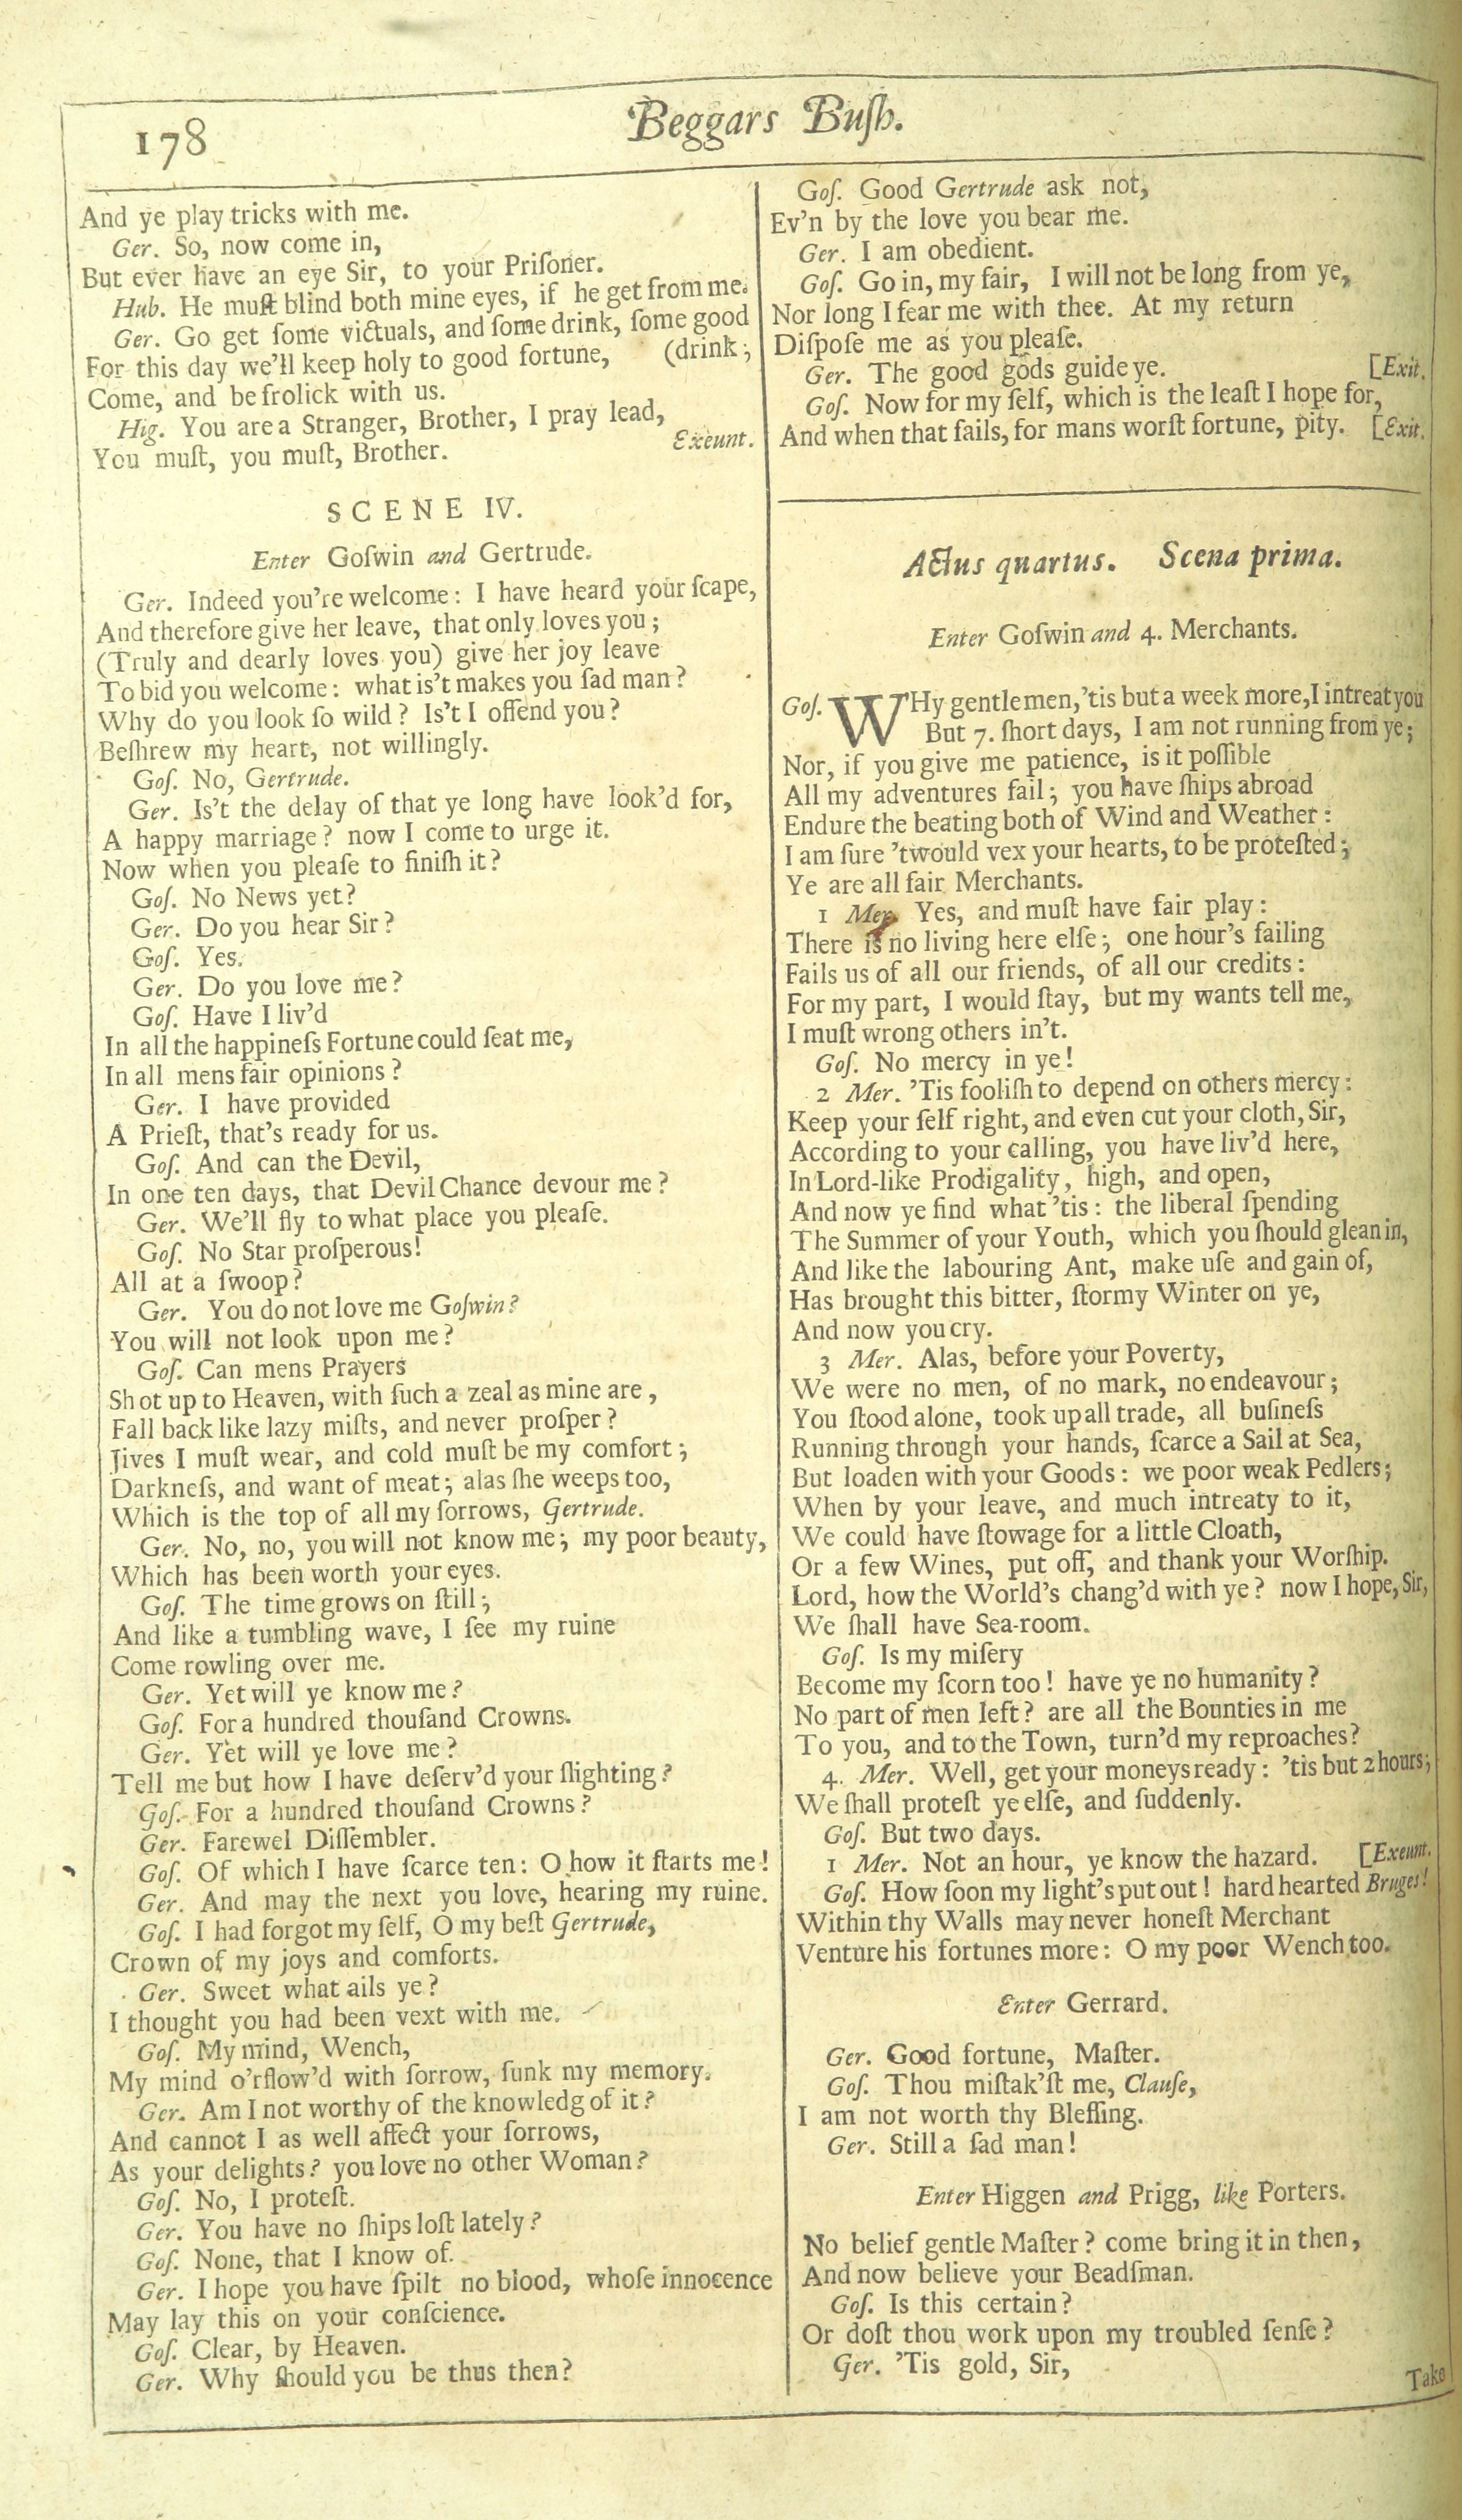 178
Beggars Buſh.
And ye play tricks with me.
Ger. So, now come in,
But ever have an eye Sir, to your Priſoner.
Hub. He muſt blind both mine eyes, if he get from me.
Ger. Go get ſome victuals, and ſome drink, ſome good
For this day we'll keep holy to good fortune, (drink;
Come, and be frolick with us.
Hig. You are a Stranger, Brother, I pray lead,
You muſt, you muſt, Brother. Exeunt.
SCENE IV.
Enter Goſwin and Gertrude.
Ger. Indeed you're welcome: I have heard your ſcape,
And therefore give her leave, that only loves you;
(Truly and dearly loves you) give her joy leave
To bid you welcome: what is't makes you ſad man?
Why do you look ſo wild? Is't I offend you?
Beſhrew my heart, not willingly.
Goſ. No, Gertrude.
Ger. Is't the delay of that ye long have look'd for,
A happy marriage? now I come to urge it.
Now when you pleaſe to finiſh it?
Goſ. No News yet?
Ger. Do you hear Sir?
Goſ. Yes.
Ger. Do you love me?
Goſ. Have I liv'd
In all the happineſs Fortune could ſeat me,
In all mens fair opinions?
Ger. I have provided
A Prieſt, that's ready for us.
Goſ. And can the Devil,
In one ten days, that Devil Chance devour me?
Ger. We'll fly to what place you pleaſe.
Goſ. No Star proſperous!
All at a ſwoop?
Ger. You do not love me Goſwin?
You will not look upon me?
Goſ. Can mens Prayers
Shot up to Heaven, with ſuch a zeal as mine are,
Fall back like lazy miſts, and never proſper?
Jives I muſt wear, and cold muſt be my comfort;
Darkneſs, and want of meat; alas ſhe weeps too,
Which is the top of all my ſorrows, Gertrude.
Ger. No, no, you will not know me; my poor beauty,
Which has been worth your eyes.
Goſ. The time grows on ſtill;
And like a tumbling wave, I ſee my ruine
Come rowling over me.
Ger. Yet will ye know me?
Goſ. For a hundred thouſand Crowns.
Ger. Yet will ye love me?
Tell me but how I have deſerv'd your ſlighting?
Goſ. For a hundred thouſand Crowns?
Ger. Farewel Diſſembler.
Goſ. Of which I have ſcarce ten: O how it ſtarts me!
Ger. And may the next you love, hearing my ruine.
Goſ. I had forgot my ſelf, O my beſt Gertrude,
Crown of my joys and comforts.
Ger. Sweet what ails ye?
I thought you had been vext with me.
Goſ. My mind, Wench,
My mind o'rflow'd with ſorrow, ſunk my memory.
Ger. Am I not worthy of the knowledg of it?
And cannot I as well affect your ſorrows,
As your delights? you love no other Woman?
Goſ. No, I proteſt.
Ger. You have no ſhips loſt lately?
Goſ. None, that I know of.
Ger. I hope you have ſpilt no blood, whoſe innocence
May lay this on your conſcience.
Goſ. Clear, by Heaven.
Ger. Why ſhould you be thus then?
Goſ. Good Gertrude ask not,
Ev'n by the love you bear me.
Ger. I am obedient.
Goſ. Go in, my fair, I will not be long from ye,
Nor long I fear me with thee. At my return
Diſpoſe me as you pleaſe.
Ger. The good gods guide ye. [Exit.
Goſ. Now for my ſelf, which is the leaſt I hope for,
And when that fails, for mans worſt fortune, pity. [Exit.
Actus quartus. Scena prima.
Enter Goſwin and 4. Merchants.
Goſ. WHy gentlemen, 'tis but a week more, I intreat you
But 7. ſhort days, I am not running from ye;
Nor, if you give me patience, is it poſſible
All my adventures fail; you have ſhips abroad
Endure the beating both of Wind and Weather:
I am ſure 'twould vex your hearts, to be proteſted;
Ye are all fair Merchants.
1 Mer. Yes, and muſt have fair play:
There is no living here elſe; one hour's failing
Fails us of all our friends, of all our credits:
For my part, I would ſtay, but my wants tell me,
I muſt wrong others in't.
Goſ. No mercy in ye!
2 Mer. 'Tis fooliſh to depend on others mercy:
Keep your ſelf right, and even cut your cloth, Sir,
According to your calling, you have liv'd here,
In Lord-like Prodigality, high, and open,
And now ye find what 'tis: the liberal ſpending
The Summer of your Youth, which you ſhould glean in,
And like the labouring Ant, make uſe and gain of,
Has brought this bitter, ſtormy Winter on ye,
And now you cry.
3 Mer. Alas, before your Poverty,
We were no men, of no mark, no endeavour;
You ſtood alone, took up all trade, all buſineſs
Running through your hands, ſcarce a Sail at Sea,
But loaden with your Goods: we poor weak Pedlers;
When by your leave, and much intreaty to it,
We could have ſtowage for a little Cloath,
Or a few Wines, put off, and thank your Worſhip.
Lord, how the World's chang'd with ye? now I hope, Sir,
We ſhall have Sea-room.
Goſ. Is my miſery
Become my ſcorn too! have ye no humanity?
No part of men left? are all the Bounties in me
To you, and to the Town, turn'd my reproaches?
4. Mer. Well, get your moneys ready: 'tis but 2 hours;
We ſhall proteſt ye elſe, and ſuddenly.
Goſ. But two days.
1 Mer. Not an hour, ye know the hazard. [Exeunt.
Goſ. How ſoon my light's put out! hard hearted Bruges!
Within thy Walls may never honeſt Merchant
Venture his fortunes more: O my poor Wench too.
Enter Gerrard.
Ger. Good fortune, Maſter.
Goſ. Thou miſtak'ſt me, Clauſe,
I am not worth thy Bleſſing.
Ger. Still a ſad man!
Enter Higgen and Prigg, like Porters.
No belief gentle Maſter? come bring it in then,
And now believe your Beadſman.
Goſ. Is this certain?
Or doſt thou work upon my troubled ſenſe?
Ger. 'Tis gold, Sir,
Take